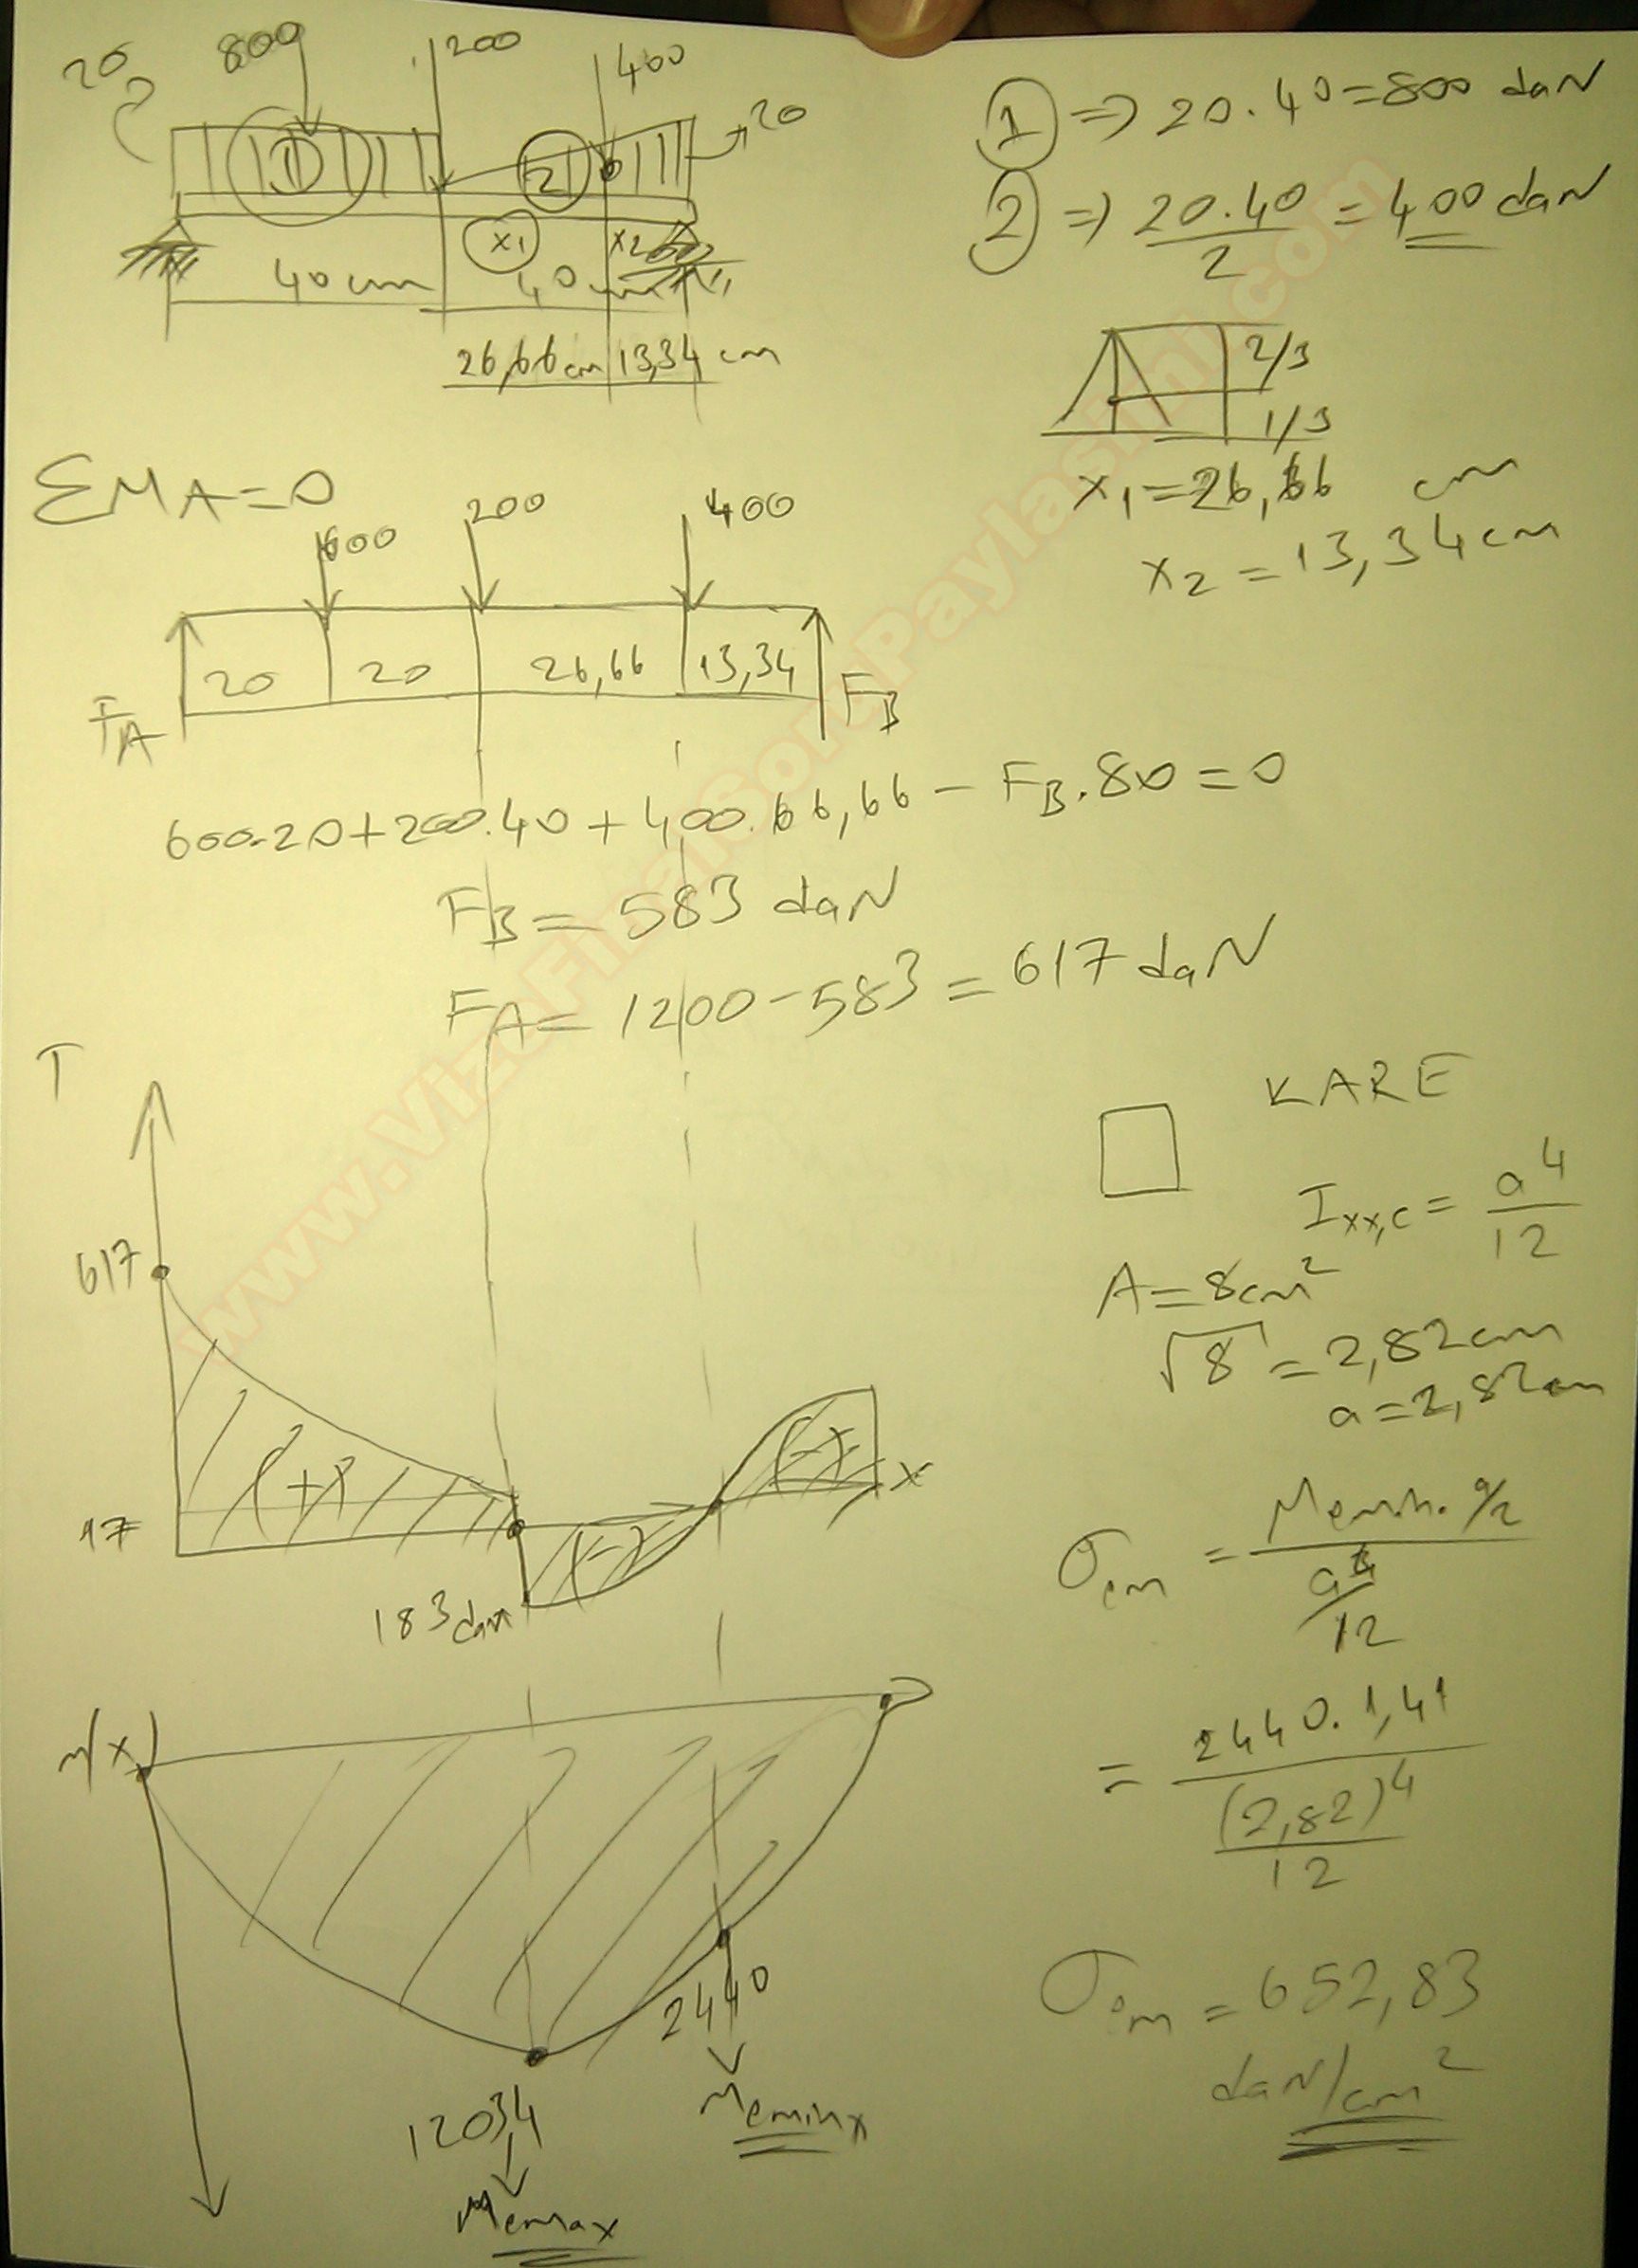 20
800
200
400
20
1
2
x1
x2
40 cm
40 cm
26,66 cm 13,34 cm
1 => 20.40=800 daN
2 => 20.40/2 = 400 daN
2/3
1/3
x1=26,66 cm
x2=13,34cm
ΣMA=0
600
200
400
20
20
26,66
13,34
FA
FB
600.20+200.40+400.66,66-FB.80=0
FB=583 daN
FA=1200-583=617 daN
T
617
17
(+)
(-)
x
183 daN
KARE
Ixx,c=a⁴/12
A=8cm²
√8=2,82cm
a=2,82cm
= 2440.1,41
(2,82)⁴
12
= 652,83
daN/cm²
M(x)
2440
12034
Memax
www.VizeFinalSoruPaylasimi.com